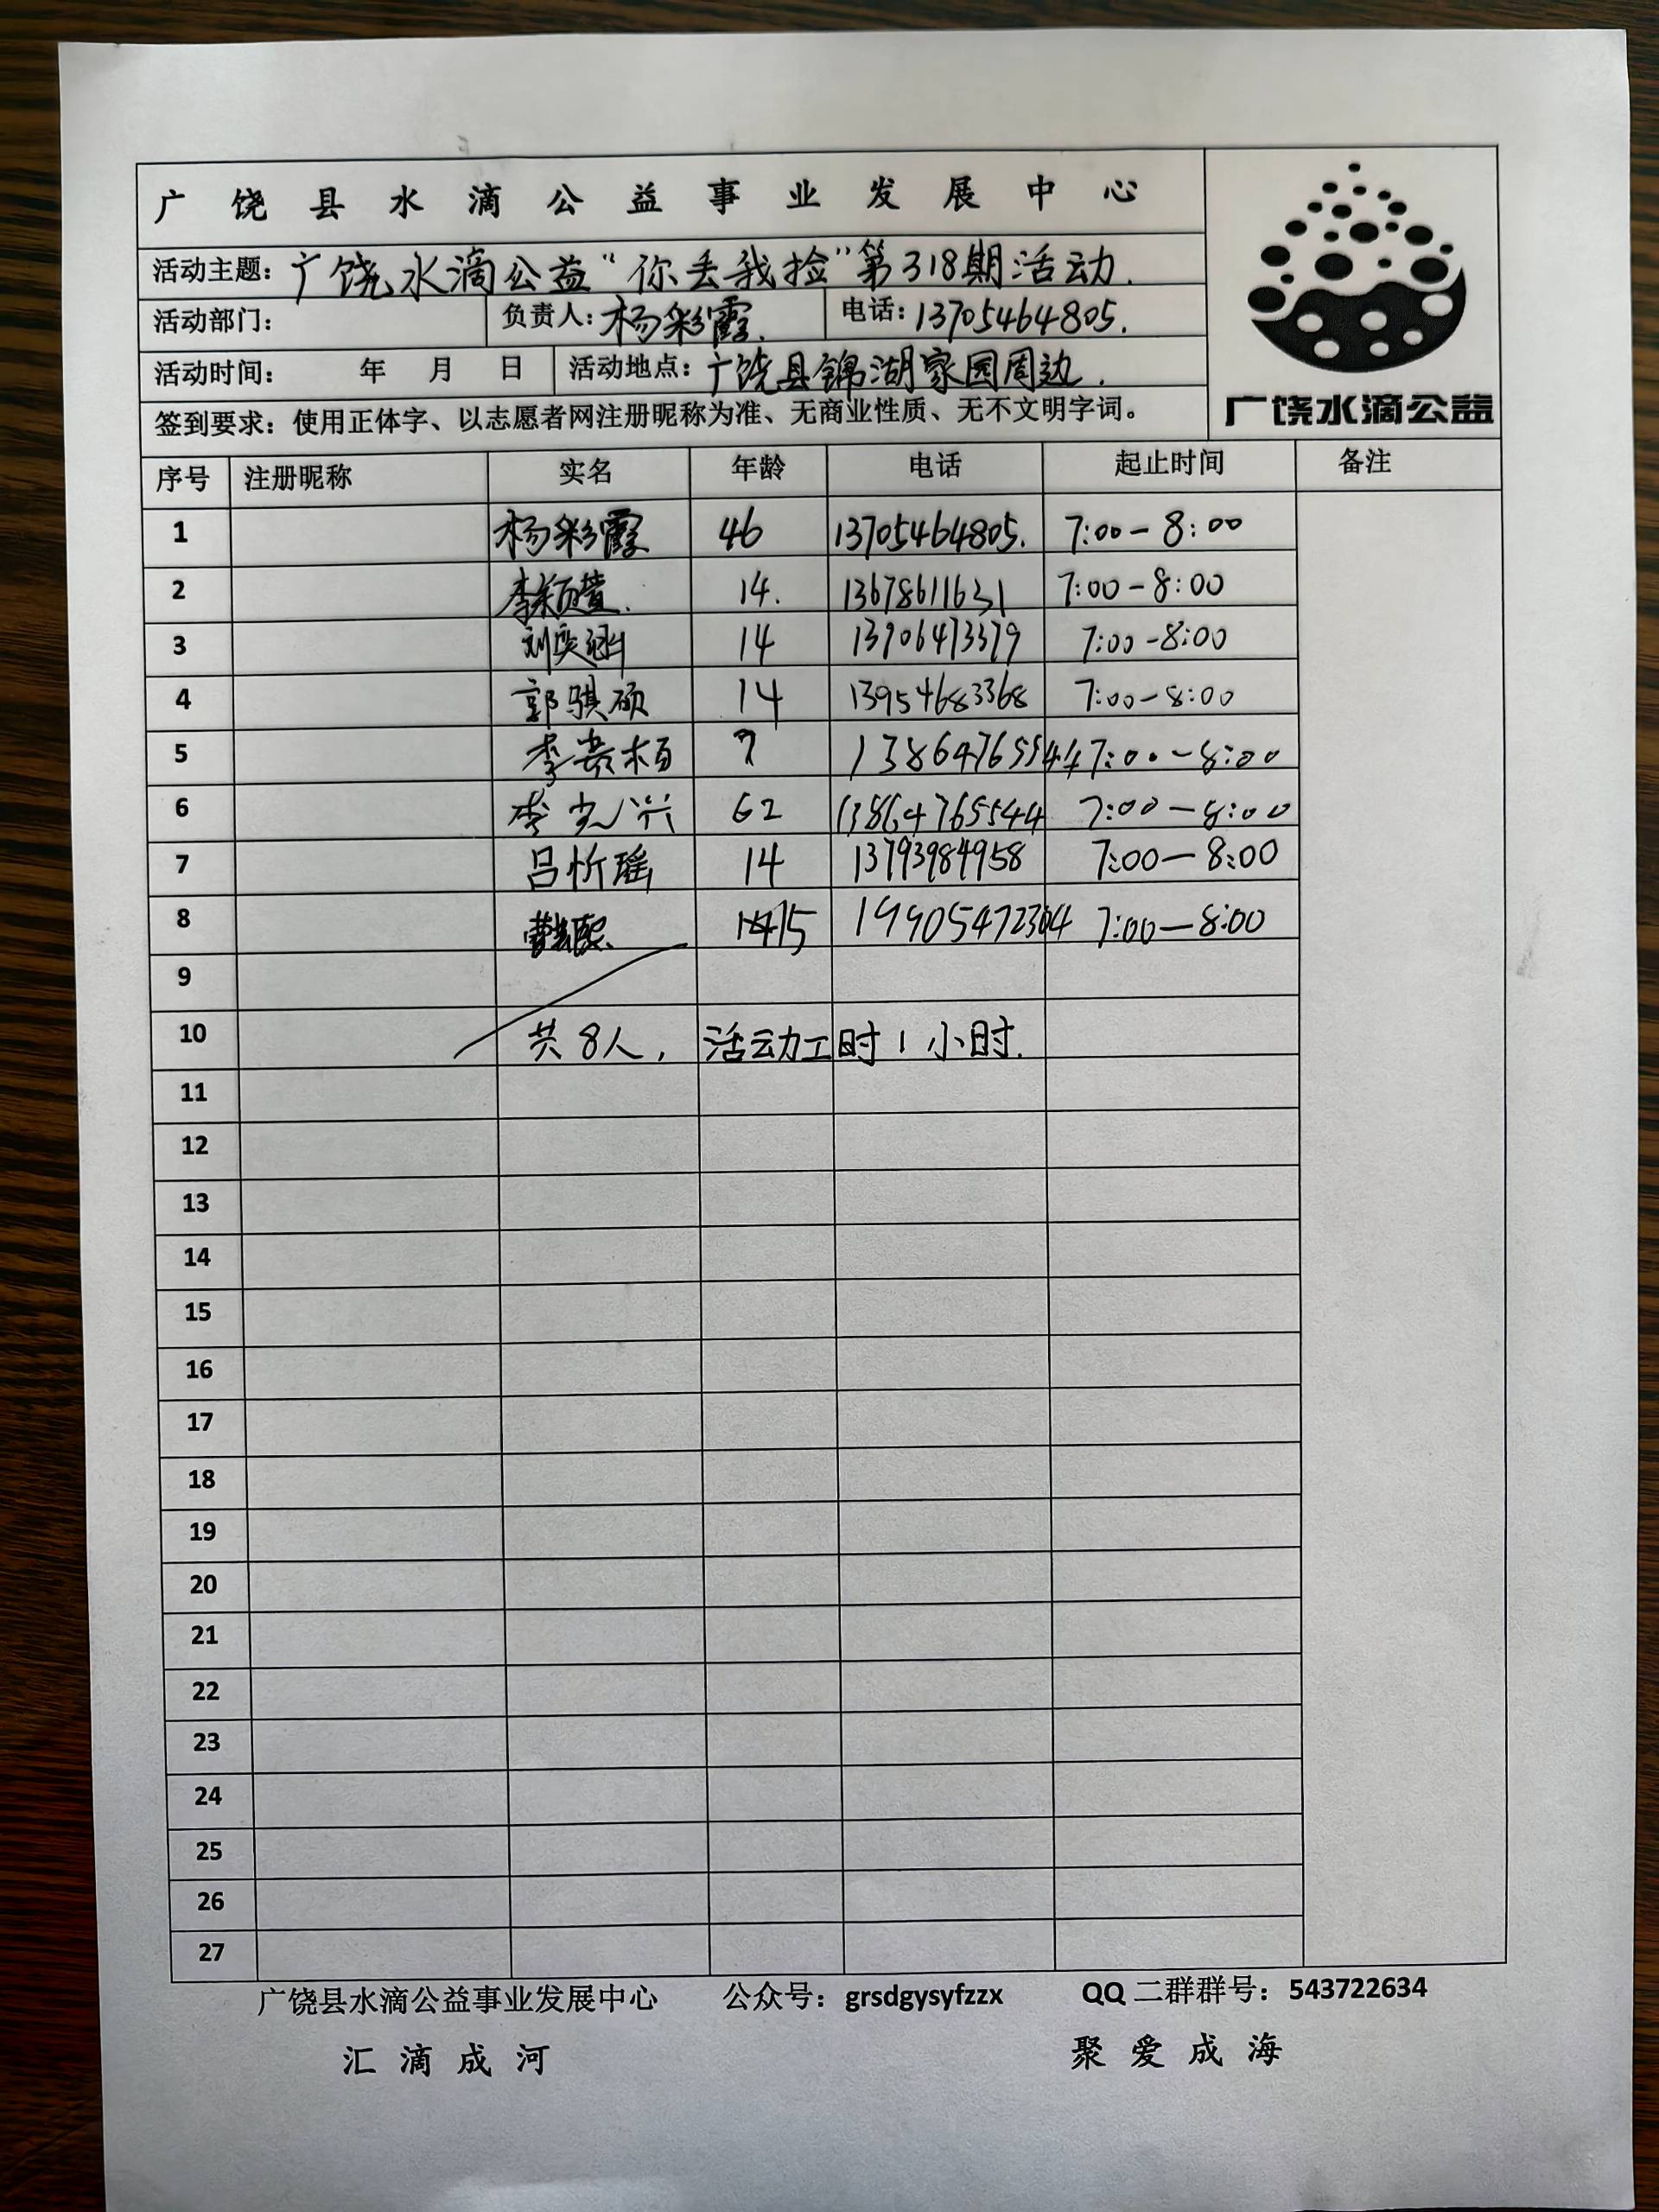 广饶县水滴公益事业发展中心
活动主题：广饶水滴公益“你丢我捡”第318期活动.
活动部门： 负责人：杨彩霞. 电话：13705464805.
活动时间： 年 月 日 活动地点：广饶县锦湖家园周边.
签到要求：使用正体字、以志愿者网注册昵称为准、无商业性质、无不文明字词。
广饶水滴公益
序号 注册昵称 实名 年龄 电话 起止时间 备注
1 杨彩霞 46 13705464805. 7:00-8:00
2 李颖萱. 14. 13678611631 7:00-8:00
3 刘奕涵 14 13906473379 7:00-8:00
4 郭骐硕 14 13954683368 7:00-8:00
5 李 7 13864765544 7:00-8:00
6 李光兴 62 13864765544 7:00-8:00
7 吕忻瑶 14 13793984958 7:00-8:00
8 曹 15 19905472304 7:00-8:00
9
10 共8人, 活动工时1小时.
11
12
13
14
15
16
17
18
19
20
21
22
23
24
25
26
27
广饶县水滴公益事业发展中心 公众号：grsdgysyfzzx QQ二群群号：543722634
汇滴成河 聚爱成海